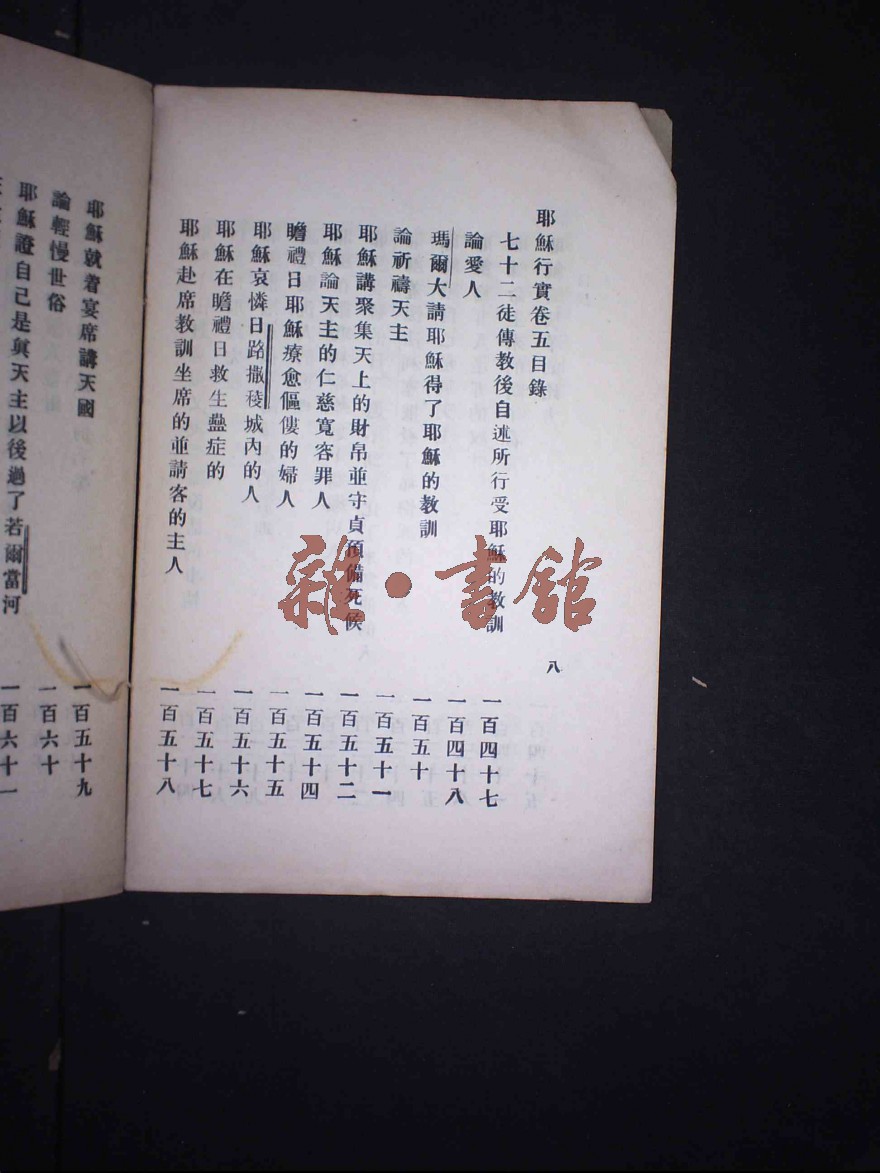 耶穌行實卷五目錄 八
七十二徒傳教後自述所行受耶穌的教訓 一百四十七
論愛人 一百四十八
瑪爾大請耶穌得了耶穌的教訓 一百五十
論祈禱天主 一百五十一
耶穌講聚集天上的財帛並守貞預備死候 一百五十二
耶穌論天主的仁慈寬容罪人 一百五十四
瞻禮日耶穌療愈傴僂的婦人 一百五十五
耶穌哀憐日路撒稜城內的人 一百五十六
耶穌在瞻禮日救生蠱症的 一百五十七
耶穌赴席教訓坐席的並請客的主人 一百五十八
耶穌就着宴席講天國 一百五十九
論輕慢世俗 一百六十
耶穌證自己是與天主以後過了若爾當河 一百六十一
雜·書館